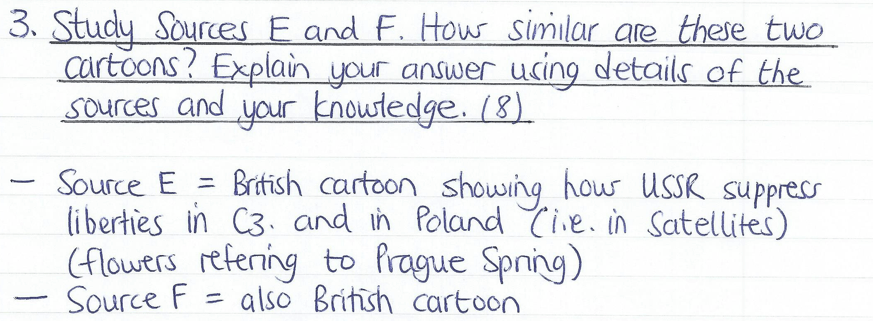 3. Study Sources E and F. How similar are these two
cartoons? Explain your answer using details of the
sources and your knowledge. (8)
— Source E = British cartoon showing how USSR suppress
liberties in C3. and in Poland (i.e. in Satellites)
(flowers refering to Prague Spring)
— Source F = also British cartoon